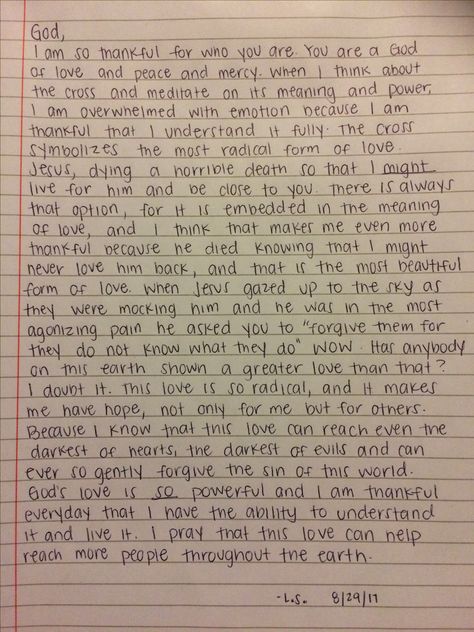 God,
I am so thankful for who you are. You are a God
of love and peace and mercy. When I think about
the cross and meditate on its meaning and power,
I am overwhelmed with emotion because I am
thankful that I understand it fully. The cross
symbolizes the most radical form of love.
Jesus, dying a horrible death so that I might
live for him and be close to you. There is always
that option, for it is embedded in the meaning
of love, and I think that makes me even more
thankful because he died knowing that I might
never love him back, and that is the most beautiful
form of love. When Jesus gazed up to the sky as
they were mocking him and he was in the most
agonizing pain he asked you to "forgive them for
they do not know what they do" WOW. Has anybody
on this earth shown a greater love than that?
I doubt it. This love is so radical, and it makes
me have hope, not only for me but for others.
Because I know that this love can reach even the
darkest of hearts, the darkest of evils and can
ever so gently forgive the sin of this world.
God's love is so powerful and I am thankful
everyday that I have the ability to understand
it and live it. I pray that this love can help
reach more people throughout the earth.
-L.S. 8/29/17